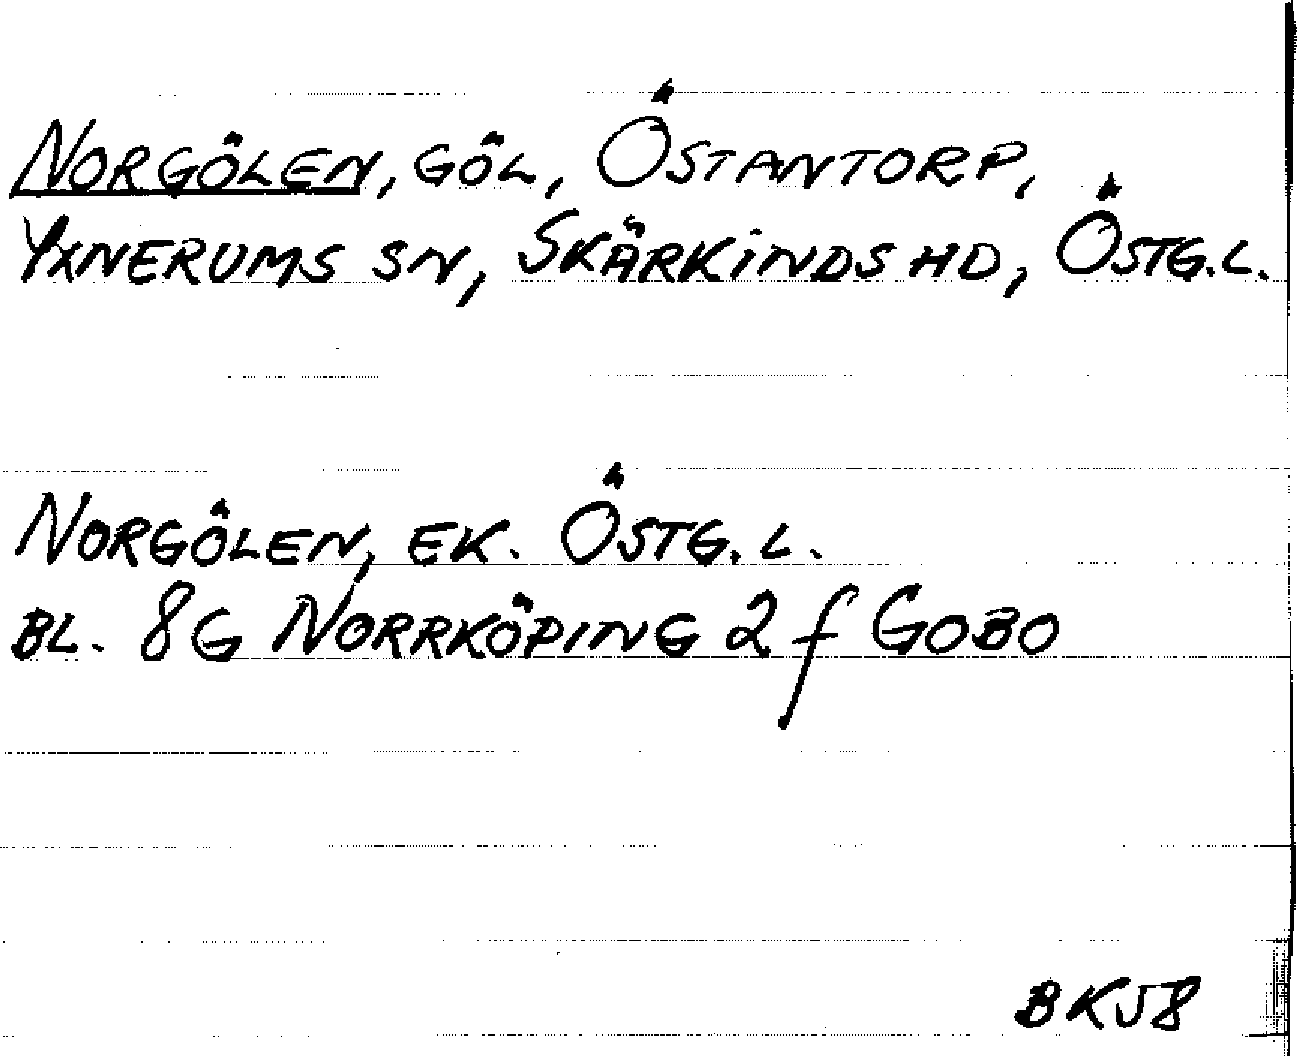 NORGÖLEN, GÖL, ÖSTANTORP,
YXNERUMS SN, SKÄRKINDS HD, ÖSTG.L.
NORGÖLEN, EK. ÖSTG.L.
BL. 8G NORRKÖPING 2f GOBO
BKJ8